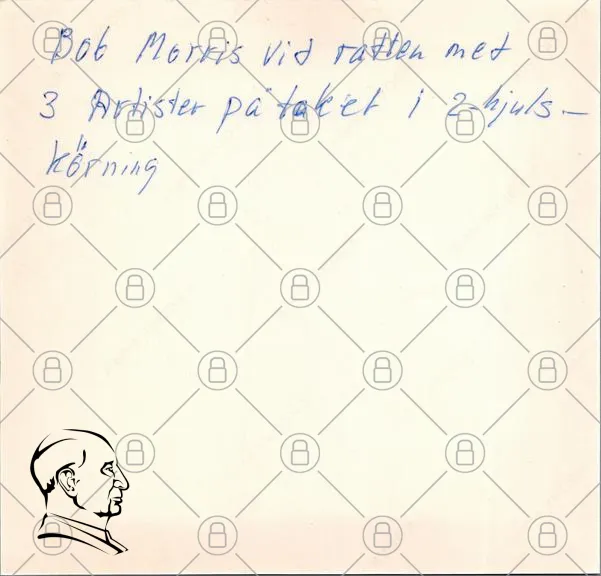 Bob Morris vid ratten med
3 Artister på taket i 2-hjuls-
körning